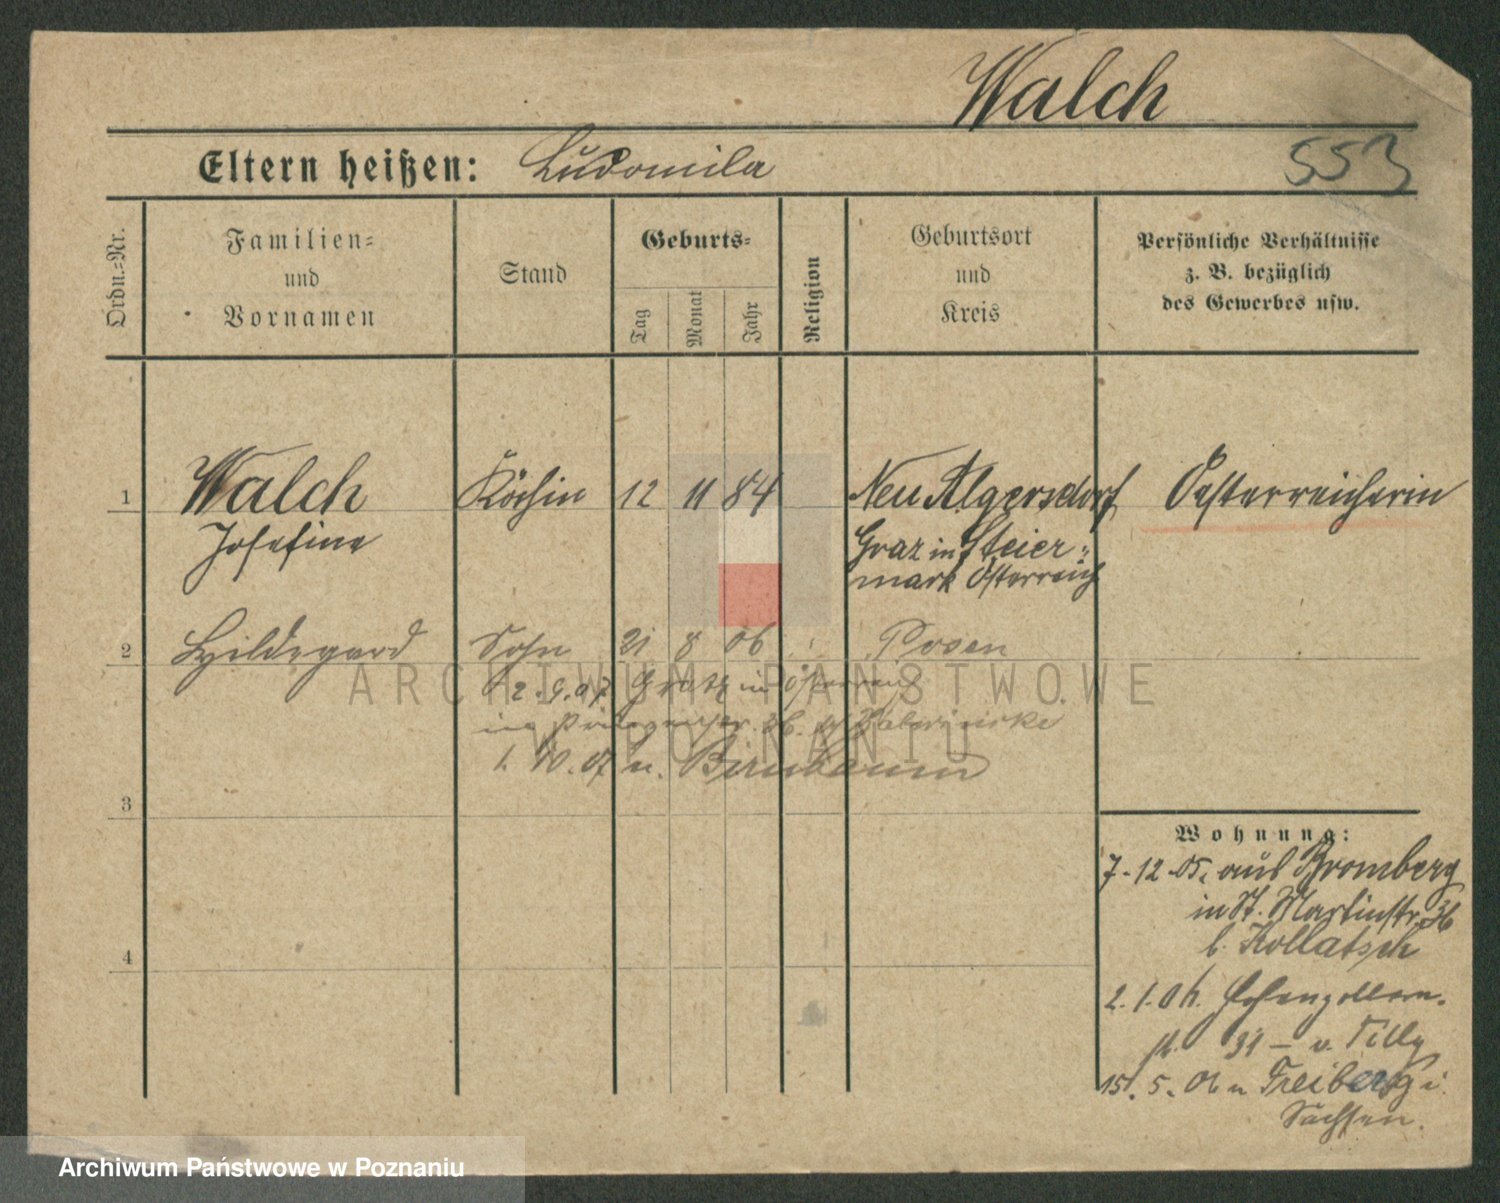 Walch
553
Eltern heißen: Ludomila
Ordn.-Nr.
Familien-
und
Vornamen
Stand
Geburts-
Tag
Monat
Jahr
Religion
Geburtsort
und
Kreis
Persönliche Verhältnisse
z. B. bezüglich
des Gewerbes usw.
1 Walch Köchin 12 11 84 Neu Algersdorf Oesterreicherin
Josefine Graz in Steier-
mark Österreich
2 Hildegard Sohn 21 8 06 Posen
2.9.07 Gratz in Österreich
in
1. 10. 07 n. Birnbaum
3
4
Wohnung:
7-12-05. aus Bromberg
in St. Martinstr. 36
b. Kollatsch
2. 1. 06. Hohenzollern-
str. 31 - v. Tilly
15. 5. 06 n Freiberg i.
Sachsen.
ARCHIWUM PAŃSTWOWE
W POZNANIU
Archiwum Państwowe w Poznaniu